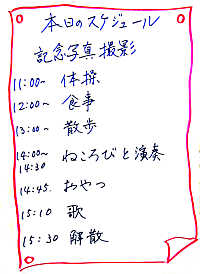 本日のスケジュール
記念写真撮影
11:00~ 体操
12:00~ 食事
13:00~ 散歩
14:00~
14:30 ねころびと演奏
14:45. おやつ
15:10 歌
15:30 解散